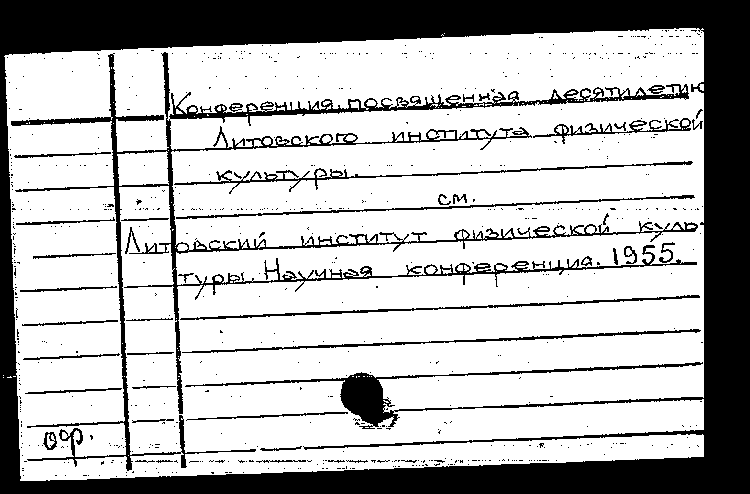 Конференция, посвященная десятилетию
Литовского института физической
культуры.
см.
Литовский институт физической куль-
туры. Научная конференция. 1955.
оф.